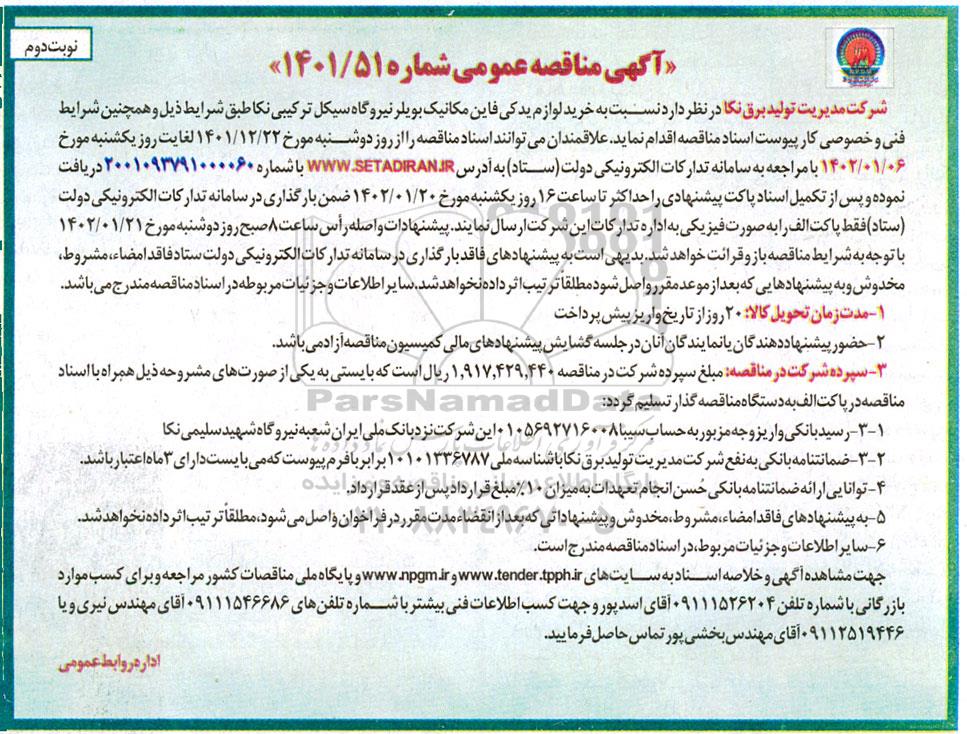 نوبت دوم
«آگهی مناقصه عمومی شماره ۱۴۰۱/۵۱»
شرکت مدیریت تولید برق نکا در نظر دارد نسبت به خرید لوازم یدکی فاین مکانیک بویلر نیروگاه سیکل ترکیبی نکا طبق شرایط ذیل و همچنین شرایط
فنی و خصوصی کار پیوست اسناد مناقصه اقدام نماید. علاقمندان می توانند اسناد مناقصه را از روز دوشنبه مورخ ۱۴۰۱/۱۲/۲۲ لغایت روز یکشنبه مورخ
۱۴۰۲/۰۱/۰۶ با مراجعه به سامانه تدارکات الکترونیکی دولت (ستاد) به آدرس WWW.SETADIRAN.IR با شماره ۲۰۰۱۰۹۳۷۹۱۰۰۰۰۶۰ دریافت
نموده و پس از تکمیل اسناد پاکت پیشنهادی را حداکثر تا ساعت ۱۶ روز یکشنبه مورخ ۱۴۰۲/۰۱/۲۰ ضمن بارگذاری در سامانه تدارکات الکترونیکی دولت
(ستاد) فقط پاکت الف را به صورت فیزیکی به اداره تدارکات این شرکت ارسال نمایند. پیشنهادات واصله رأس ساعت ۸ صبح روز دوشنبه مورخ ۱۴۰۲/۰۱/۲۱
با توجه به شرایط مناقصه باز و قرائت خواهد شد. بدیهی است به پیشنهادهای فاقد بارگذاری در سامانه تدارکات الکترونیکی دولت ستاد فاقد امضاء، مشروط،
مخدوش و به پیشنهادهایی که بعد از موعد مقرر واصل شود مطلقاً ترتیب اثر داده نخواهد شد. سایر اطلاعات و جزئیات مربوطه در اسناد مناقصه مندرج می باشد.
۱- مدت زمان تحویل کالا: ۲۰ روز از تاریخ واریز پیش پرداخت
۲- حضور پیشنهاد دهندگان یا نمایندگان آنان در جلسه گشایش پیشنهادهای مالی کمیسیون مناقصه آزاد می باشد.
۳- سپرده شرکت در مناقصه: مبلغ سپرده شرکت در مناقصه ۱,۹۱۷,۴۲۹,۴۴۰ ریال است که بایستی به یکی از صورت های مشروحه ذیل همراه با اسناد
مناقصه در پاکت الف به دستگاه مناقصه گذار تسلیم گردد:
۳-۱- رسید بانکی واریز وجه مزبور به حساب سیبا ۰۱۰۵۶۹۲۷۱۶۰۰۸ این شرکت نزد بانک ملی ایران شعبه نیروگاه شهید سلیمی نکا
۳-۲- ضمانتنامه بانکی به نفع شرکت مدیریت تولید برق نکا با شناسه ملی ۱۰۱۰۱۳۳۶۷۸۷ برابر با فرم پیوست که می بایست دارای ۳ ماه اعتبار باشد.
۴- توانایی ارائه ضمانتنامه بانکی حُسن انجام تعهدات به میزان ۱۰٪ مبلغ قرارداد پس از عقد قرارداد.
۵- به پیشنهادهای فاقد امضاء، مشروط، مخدوش و پیشنهاداتی که بعد از انقضاء مدت مقرر در فراخوان واصل می شود، مطلقاً ترتیب اثر داده نخواهد شد.
۶- سایر اطلاعات و جزئیات مربوط، در اسناد مناقصه مندرج است.
جهت مشاهده آگهی و خلاصه اسناد به سایت های www.tender.tpph.ir و www.npgm.ir و پایگاه ملی مناقصات کشور مراجعه و برای کسب موارد
بازرگانی با شماره تلفن ۰۹۱۱۱۵۲۶۲۰۴ آقای اسدپور و جهت کسب اطلاعات فنی بیشتر با شماره تلفن های ۰۹۱۱۱۵۴۶۶۸۶ آقای مهندس نیری و یا
۰۹۱۱۲۵۱۹۴۴۶ آقای مهندس بخشی پور تماس حاصل فرمایید.
اداره روابط عمومی
ParsNamadData